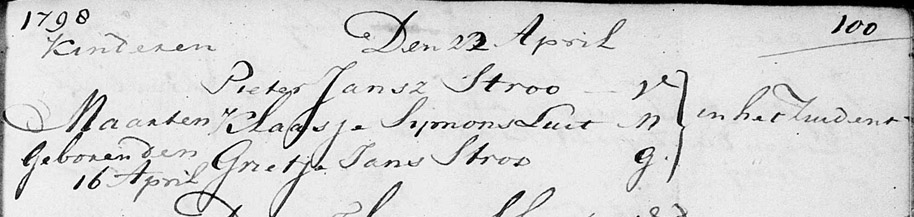 1798 100
Kinderen Den 22 April
Pieter Jansz Stroo — V
Maarten Klaasje Symons Luit M in het Zuident
Geboren den Grietje Jans Stroo g.
16 April